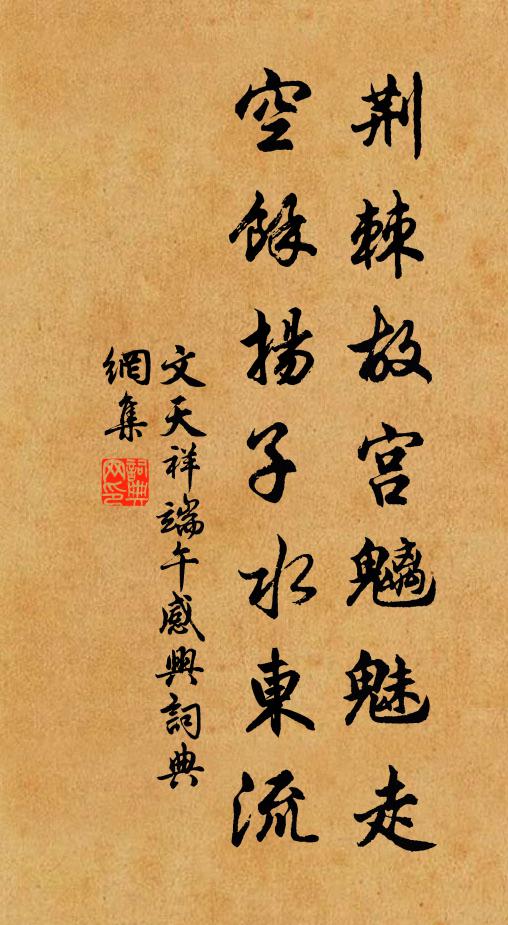 荆棘故宫魑魅走
空餘揚子水東流
文天祥端午感興詞典
網集
詞典網印